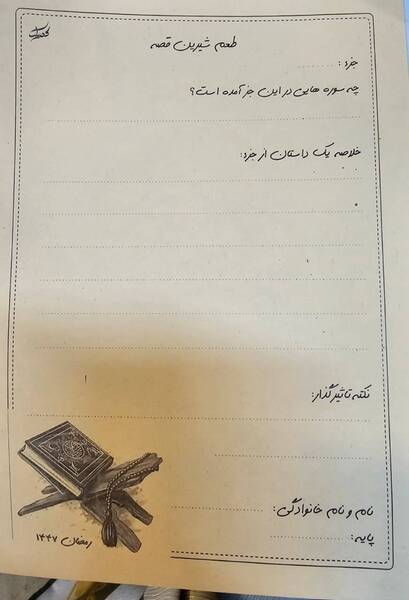 طعم شیرین قصه
جزء : ..........
چه سوره هایی در این جزء آمده است؟
خلاصه یک داستان از جزء:
نکته تاثیرگذار:
نام و نام خانوادگی:
پایه:
رمضان ۱۴۴۷